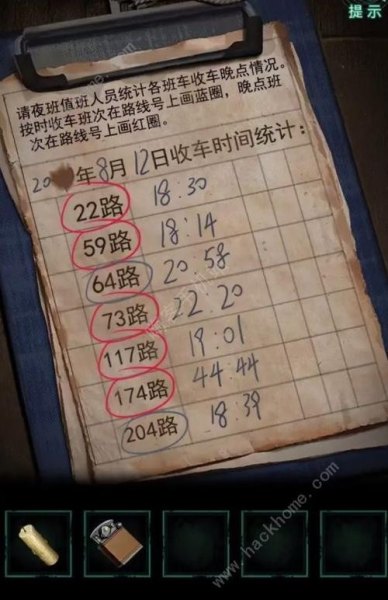 提示
请夜班值班人员统计各班车收车晚点情况。
按时收车班次在路线号上画蓝圈，晚点班
次在路线号上画红圈。
20 年8月12日收车时间统计：
22路 18:30
59路 18:14
64路 20:58
73路 22:20
117路 19:01
174路 44:44
204路 18:39
www.hackhome.com